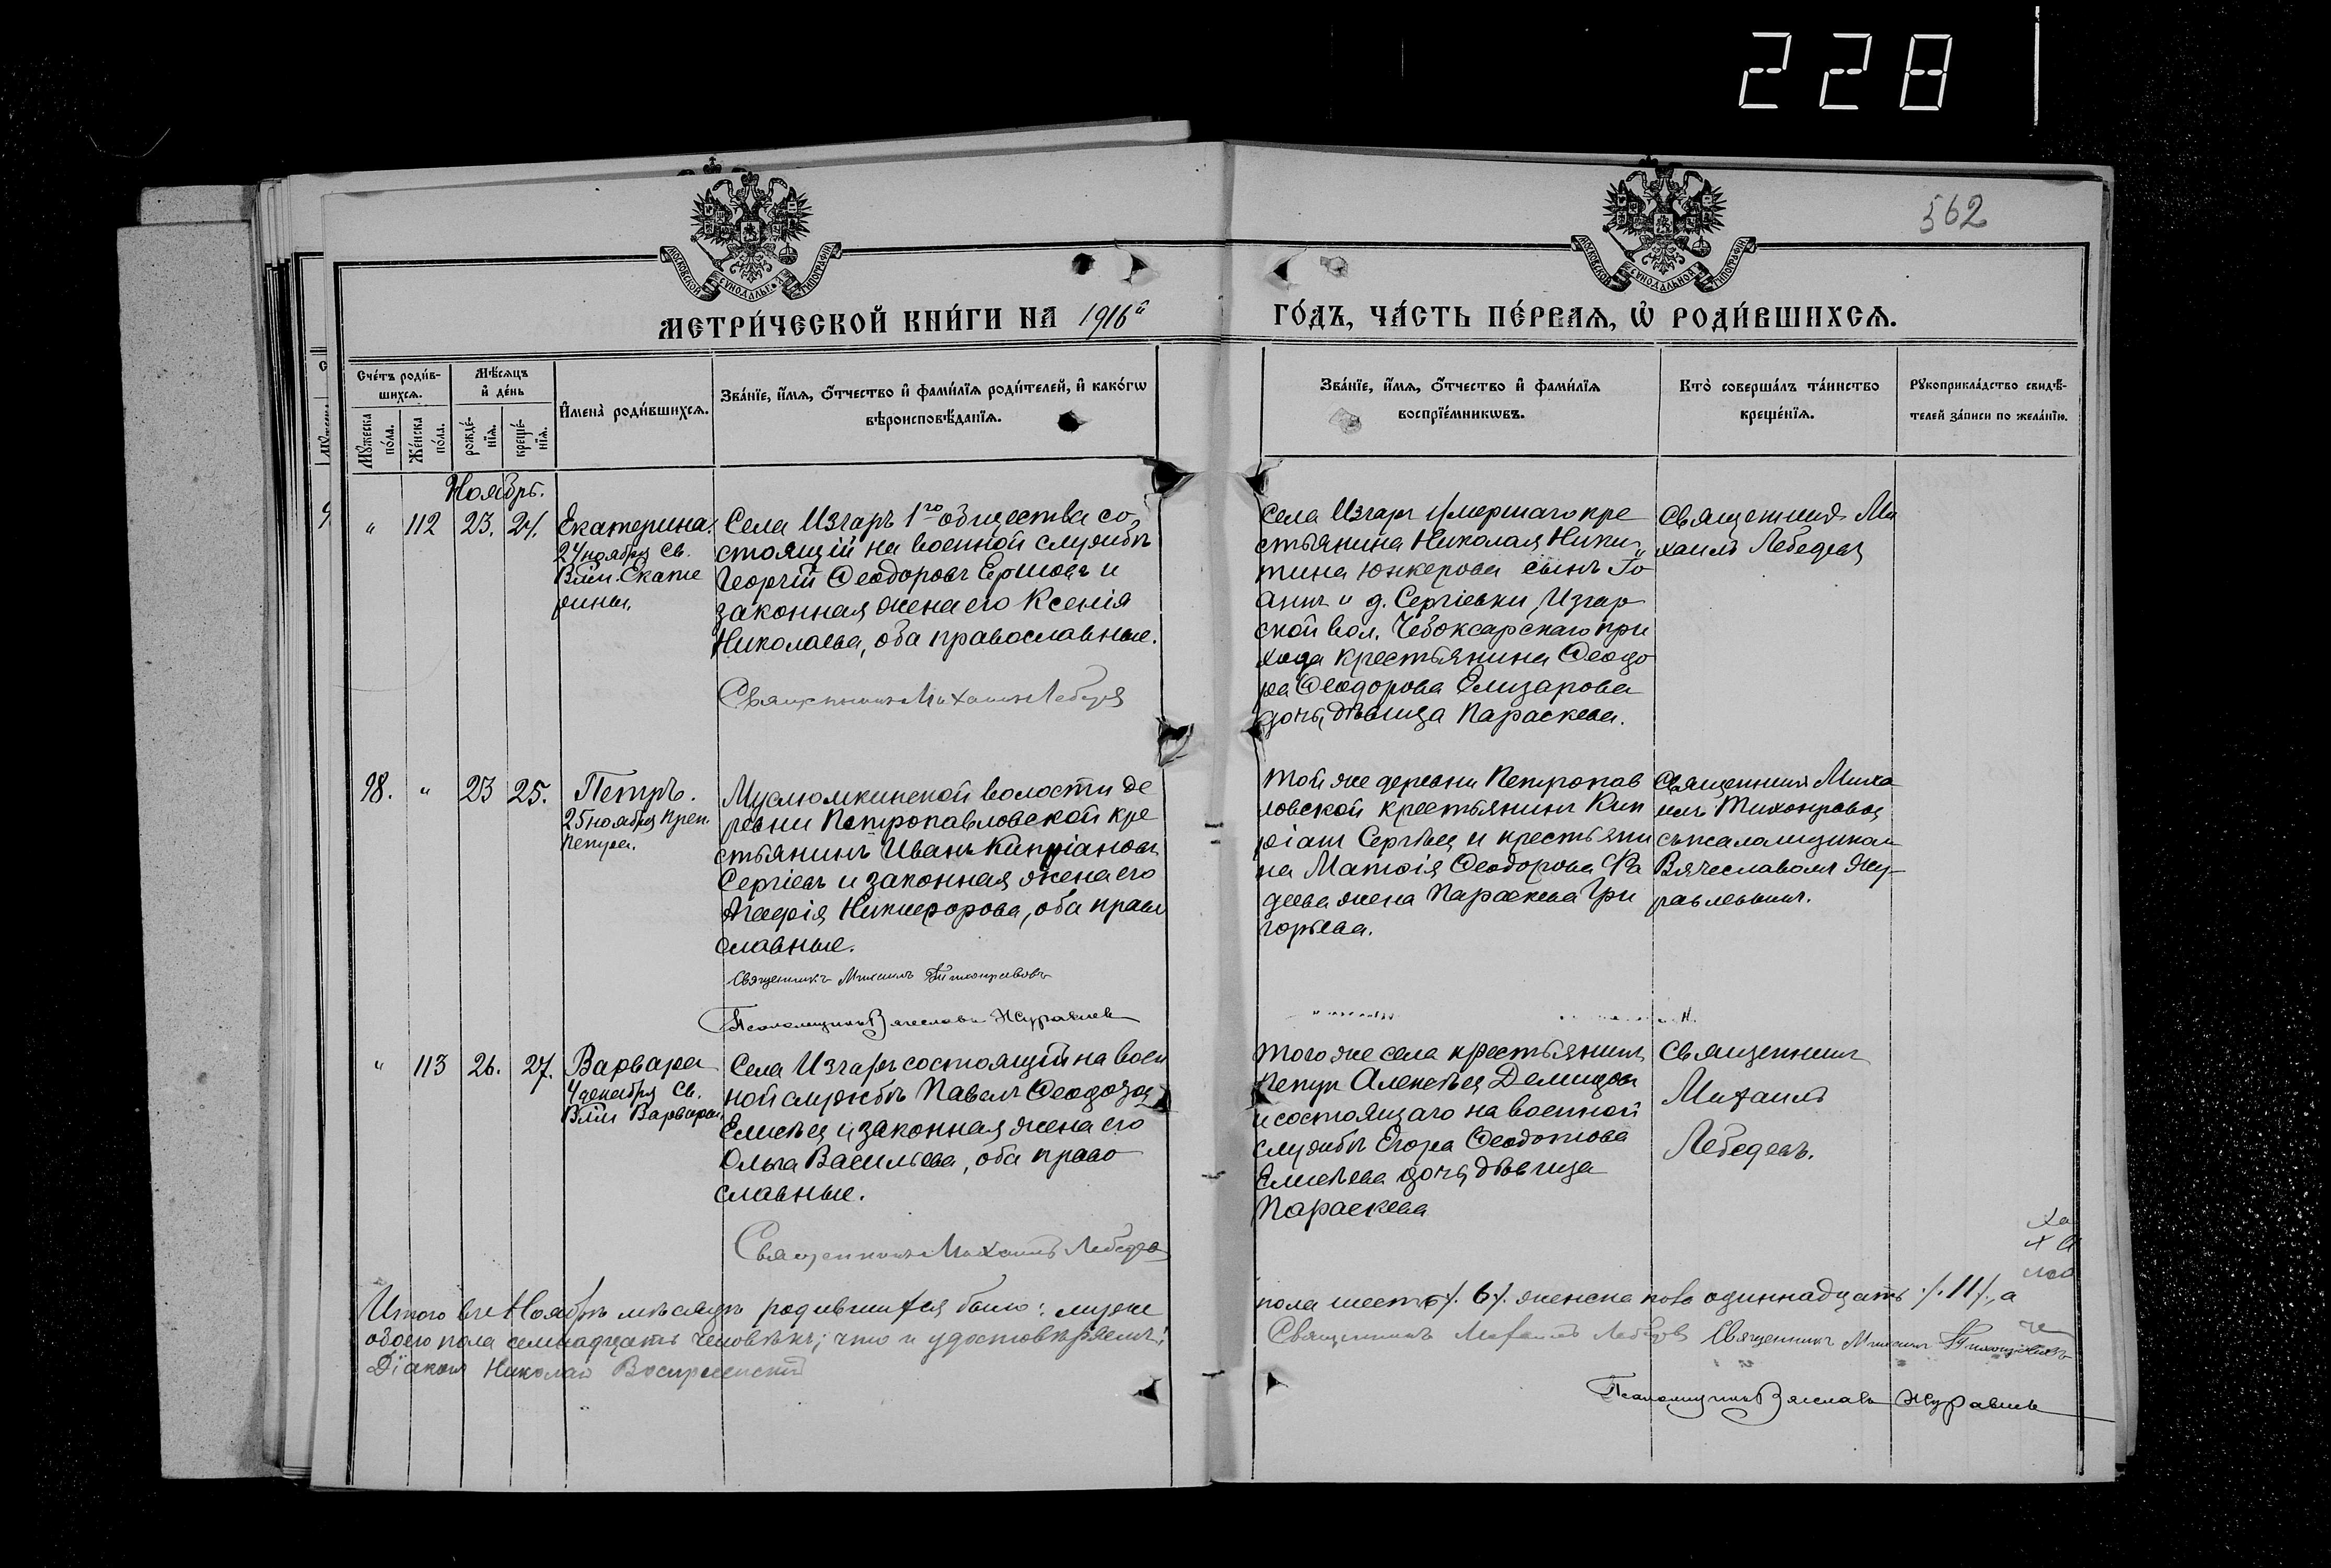 228
562
МОСКОВСКОЙ СУНОДАЛЬНОЙ ТИПОГРАФІИ
МОСКОВСКОЙ СУНОДАЛЬНОЙ ТИПОГРАФІИ
МЕТРИ́ЧЕСКОЙ КНИ́ГИ НА 1916й ГО́ДЪ, ЧА́СТЬ ПЕ́РВАѦ, Ѡ҆ РОДИ́ВШИХСѦ.
Сче́тъ роди́в-
шихсѧ.
Мꙋжеска
по́ла.
Же́нска
по́ла.
Мѣ́сѧцъ
и҆ де́нь
рожде́-
нїѧ.
креще́-
нїѧ.
И҆мена̀ роди́вшихсѧ.
Зва́нїе, и҆́мѧ, ѻ҆́тчество и҆ фами́лїѧ роди́телей, и҆ како́гѡ
вѣроисповѣ́данїѧ.
Зва́нїе, и҆́мѧ, ѻ҆́тчество и҆ фами́лїѧ
воспрїе́мникѡвъ.
Кто̀ соверша́лъ та́инство
креще́нїѧ.
Рꙋкоприкла́дство свидѣ́-
телей за́писи по жела́нїю.
Ноябрь.
" 112 23. 24. Екатерина.
24 ноября Св.
Вмч. Екате
рины.
Села Изгаръ 1го общества со,
стоящій на военной службѣ
Георгій Ѳеодоровъ Ершовъ и
законная жена его Ксенія
Николаева, оба православные.
Священникъ Михаилъ Лебедев
Села Изгаръ умершаго кре
стьянина Николая Ники,,
тина Юнкерова сынъ Іо
аннъ и д. Сергіевки, Изгар
ской вол. Чебоксарскаго при
хода крестьянина Ѳеодо
ра Ѳеодорова Елизарова
дочь, дѣвица Параскева.
Священникъ Ми
хаилъ Лебедев
98. " 23 25. Петръ.
25 ноября Преп.
Петра.
Муслюмкинской волости де
ревни Петропавловской кре
стьянинъ Иванъ Кипріановъ
Сергіевъ и законная жена его
Агафія Никифорова, оба право
славные.
Священникъ Михаилъ Тихонравовъ
Псаломщикъ Вячеславъ Журавлев
Той же деревни Петропав
ловской крестьянинъ Кип
ріанъ Сергѣев и крестьяни
на Матѳія Ѳеодорова Фа
деева жена Параскева Гри
горьева.
Священникъ Миха
илъ Тихонравов
съ псаломщиком
Вячеславомъ Жу-
равлевымъ.
" 113 26. 27. Варвара
4 декабря Св.
Вмч Варвары.
Села Изгаръ состоящій на воен
ной службѣ Павелъ
Елисѣев и законная жена его
Ольга Васильева, оба право
славные.
Священникъ Михаилъ Лебедев
Того же села крестьянинъ
Петръ Алексѣев Демидов
и состоящаго на военной
службѣ Егора Ѳеодотова
Елисѣева дочь, дѣвица
Параскева
Священникъ
Михаилъ
Лебедевъ.
Итого въ Ноябрѣ мѣсяцѣ родившихся было: муже
пола шесть /. 6 /. женска пола одиннадцать /. 11 /., а
обоего пола семнадцать человѣкъ; что и удостовѣряемъ:
Священникъ Михаилъ Лебедев Священникъ Михаилъ Тихонравовъ
Діаконъ Николай Воскресенскій
Псаломщикъ Вячеславъ Журавлев